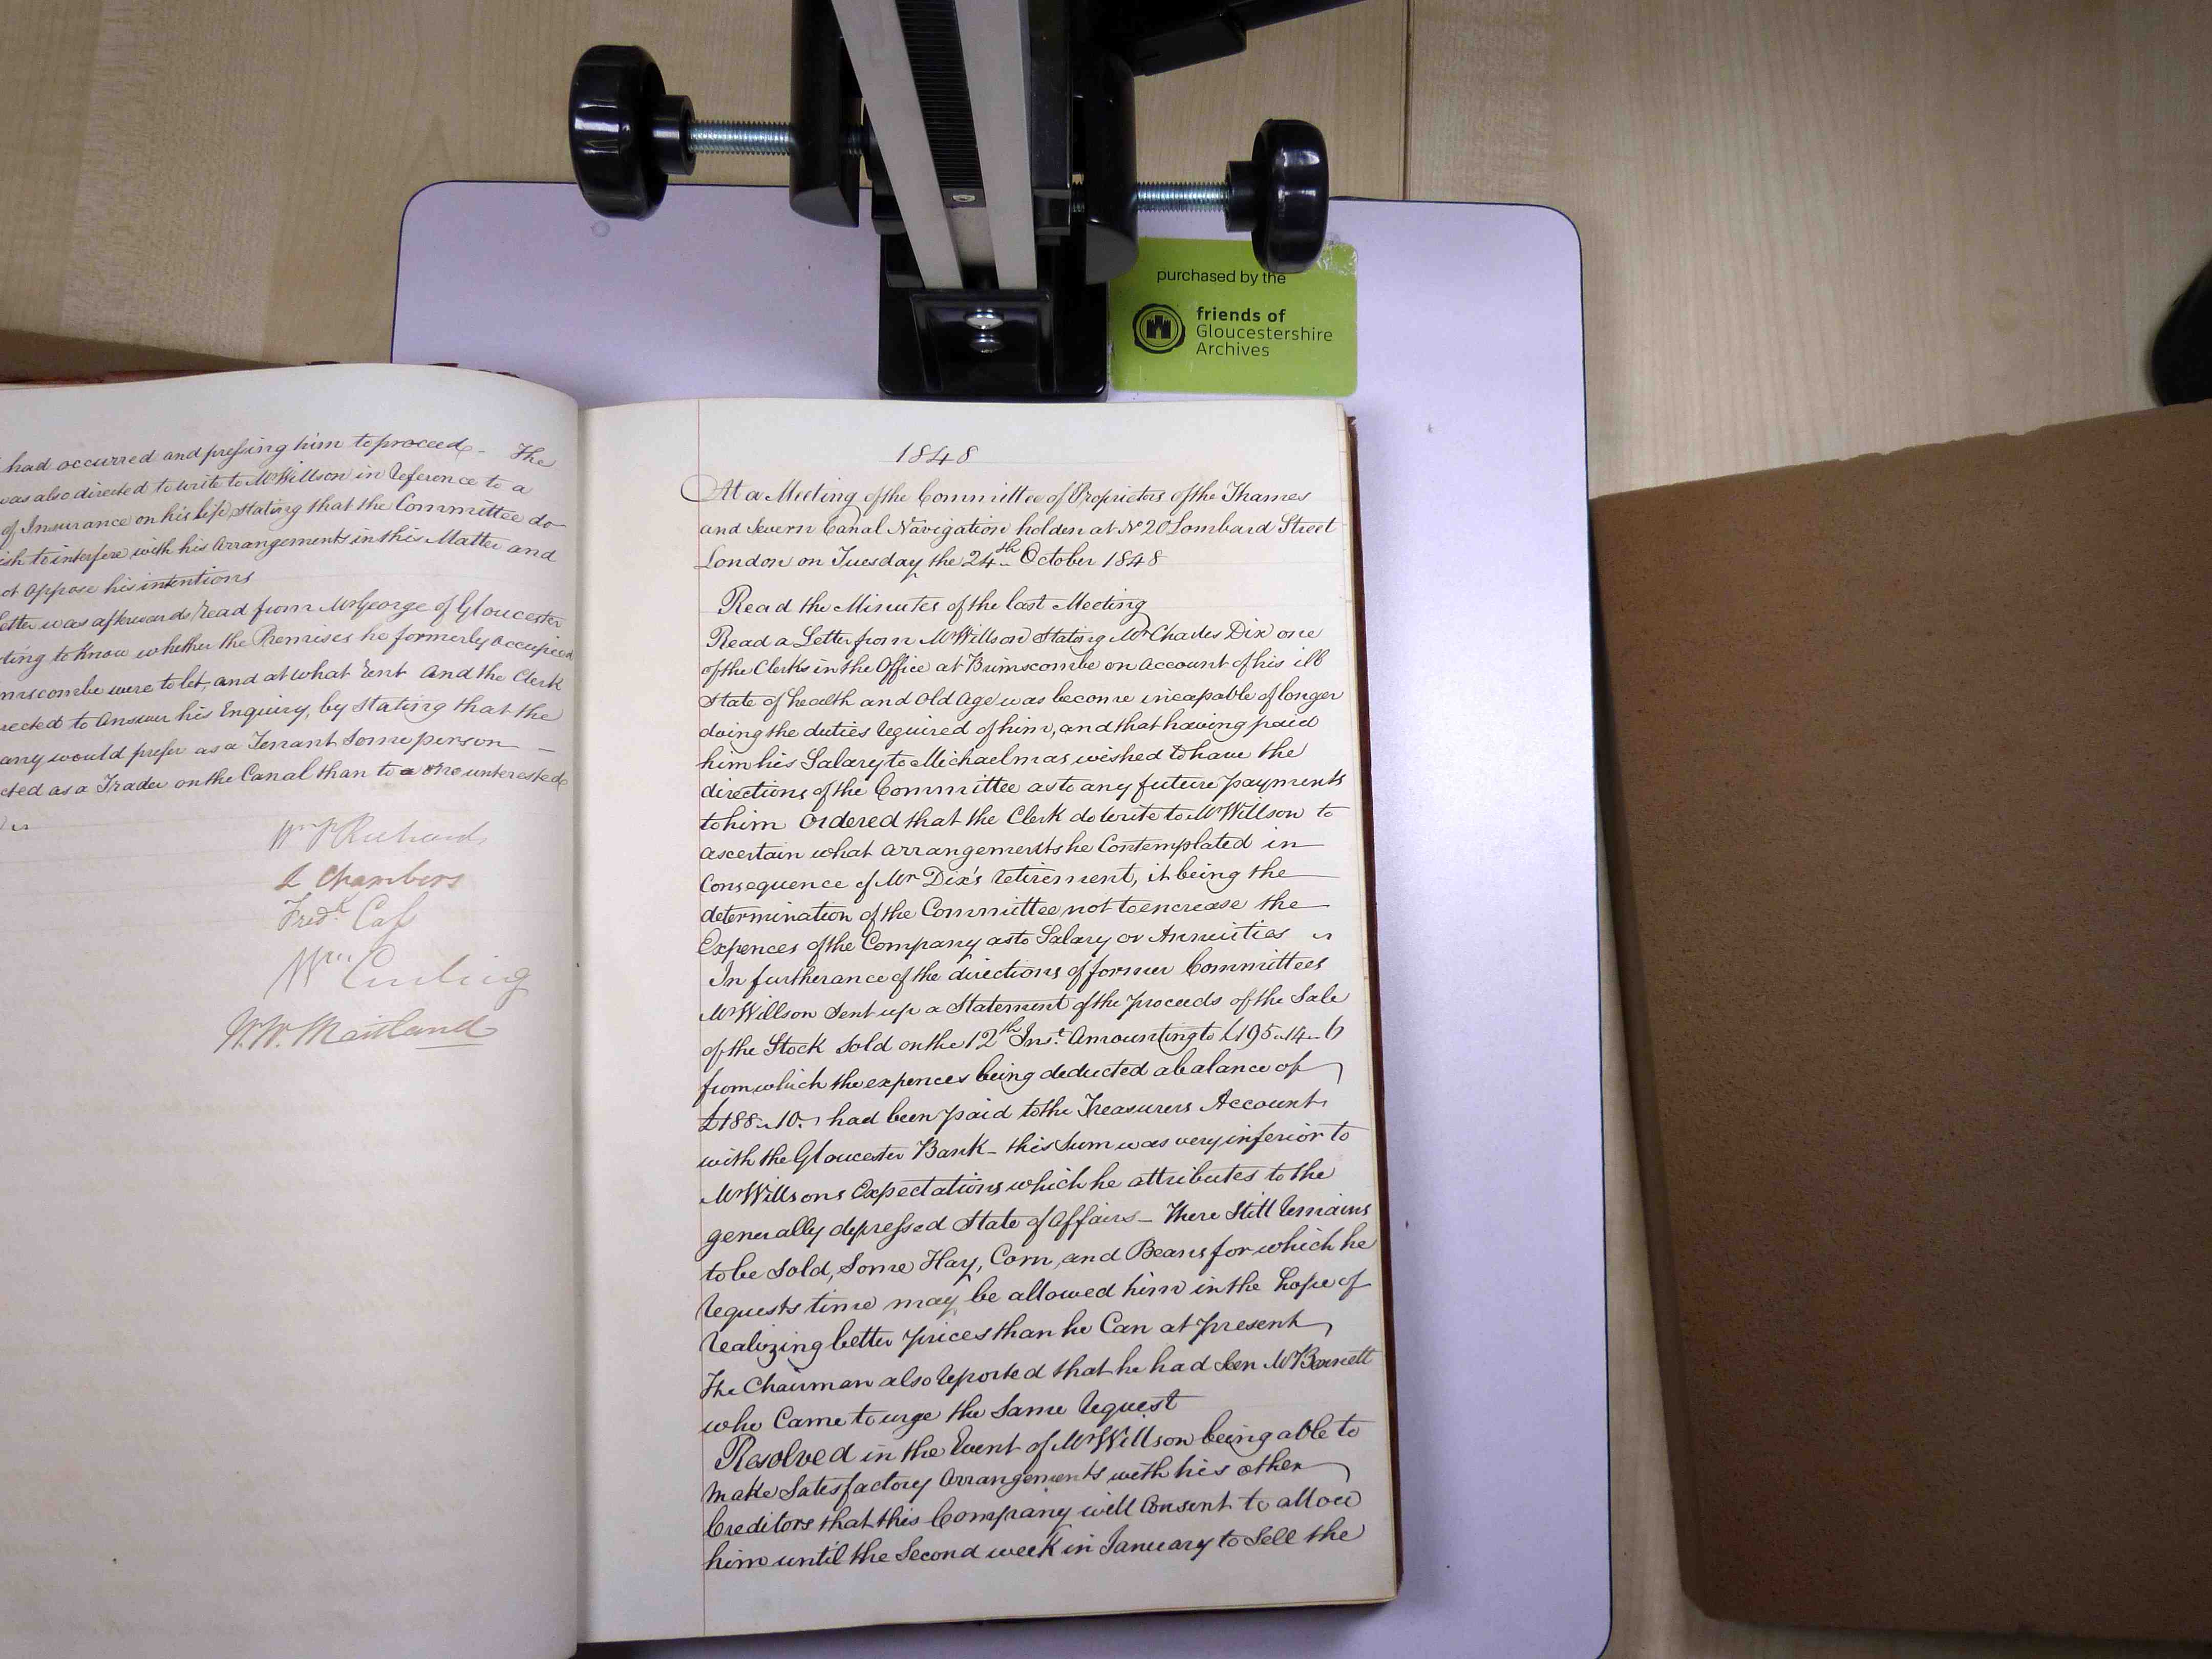 purchased by the
friends of
Gloucestershire
Archives
had occurred and pressing him to proceed - The
was also directed to write to Mr Willson in reference to a
of Insurance on his life stating that the Committee do
ish to interfere with his Arrangements in this Matter and
ot oppose his intentions
etter was afterwards read from Mr George of Gloucester
ting to know whether the Premises he formerly occupied
mscombe were to let, and at what Rent and the Clerk
rected to Answer his Enquiry, by stating that the
any would prefer as a Tenant some person
cted as a Trader on the Canal than to a one unterested
Chambers
Fredk.
Wm Curling
W. W. Maitland
1848
At a Meeting of the Committee of Proprietors of the Thames
and Severn Canal Navigation holden at No 20 Lombard Street
London on Tuesday the 24th October 1848
Read the Minutes of the last Meeting
Read a Letter from Mr Willson Stating Mr Charles Dix one
of the Clerks in the Office at Brimscombe on account of his ill
State of health and Old Age was become incapable of longer
doing the duties required of him, and that having paid
him his Salary to Michaelmas wished to have the
directions of the Committee as to any future payments
to him Ordered that the Clerk do write to Mr Willson to
ascertain what arrangements he Contemplated in
Consequence of Mr Dix's retirement, it being the
determination of the Committee not to encrease the
Expences of the Company as to Salary or Annuities
In furtherance of the directions of former Committees
Mr Willson Sent up a Statement of the proceeds of the Sale
of the Stock Sold on the 12th Inst. Amounting to £195-14-6
from which the expences being deducted a balance of
£188-10- had been paid to the Treasurers Account
with the Gloucester Bank - this Sum was very inferior to
Mr Willsons Expectations which he attributes to the
generally depressed State of Affairs - There Still remains
to be Sold, Some Hay, Corn, and Beans for which he
requests time may be allowed him in the hope of
realizing better prices than he Can at present
The Chairman also reported that he had seen Mr
who Came to urge the Same request
Resolved in the Event of Mr Willson being able to
make Satesfactory Arrangements with his other
Creditors that this Company will Consent to allow
him until the Second week in January to Sell the